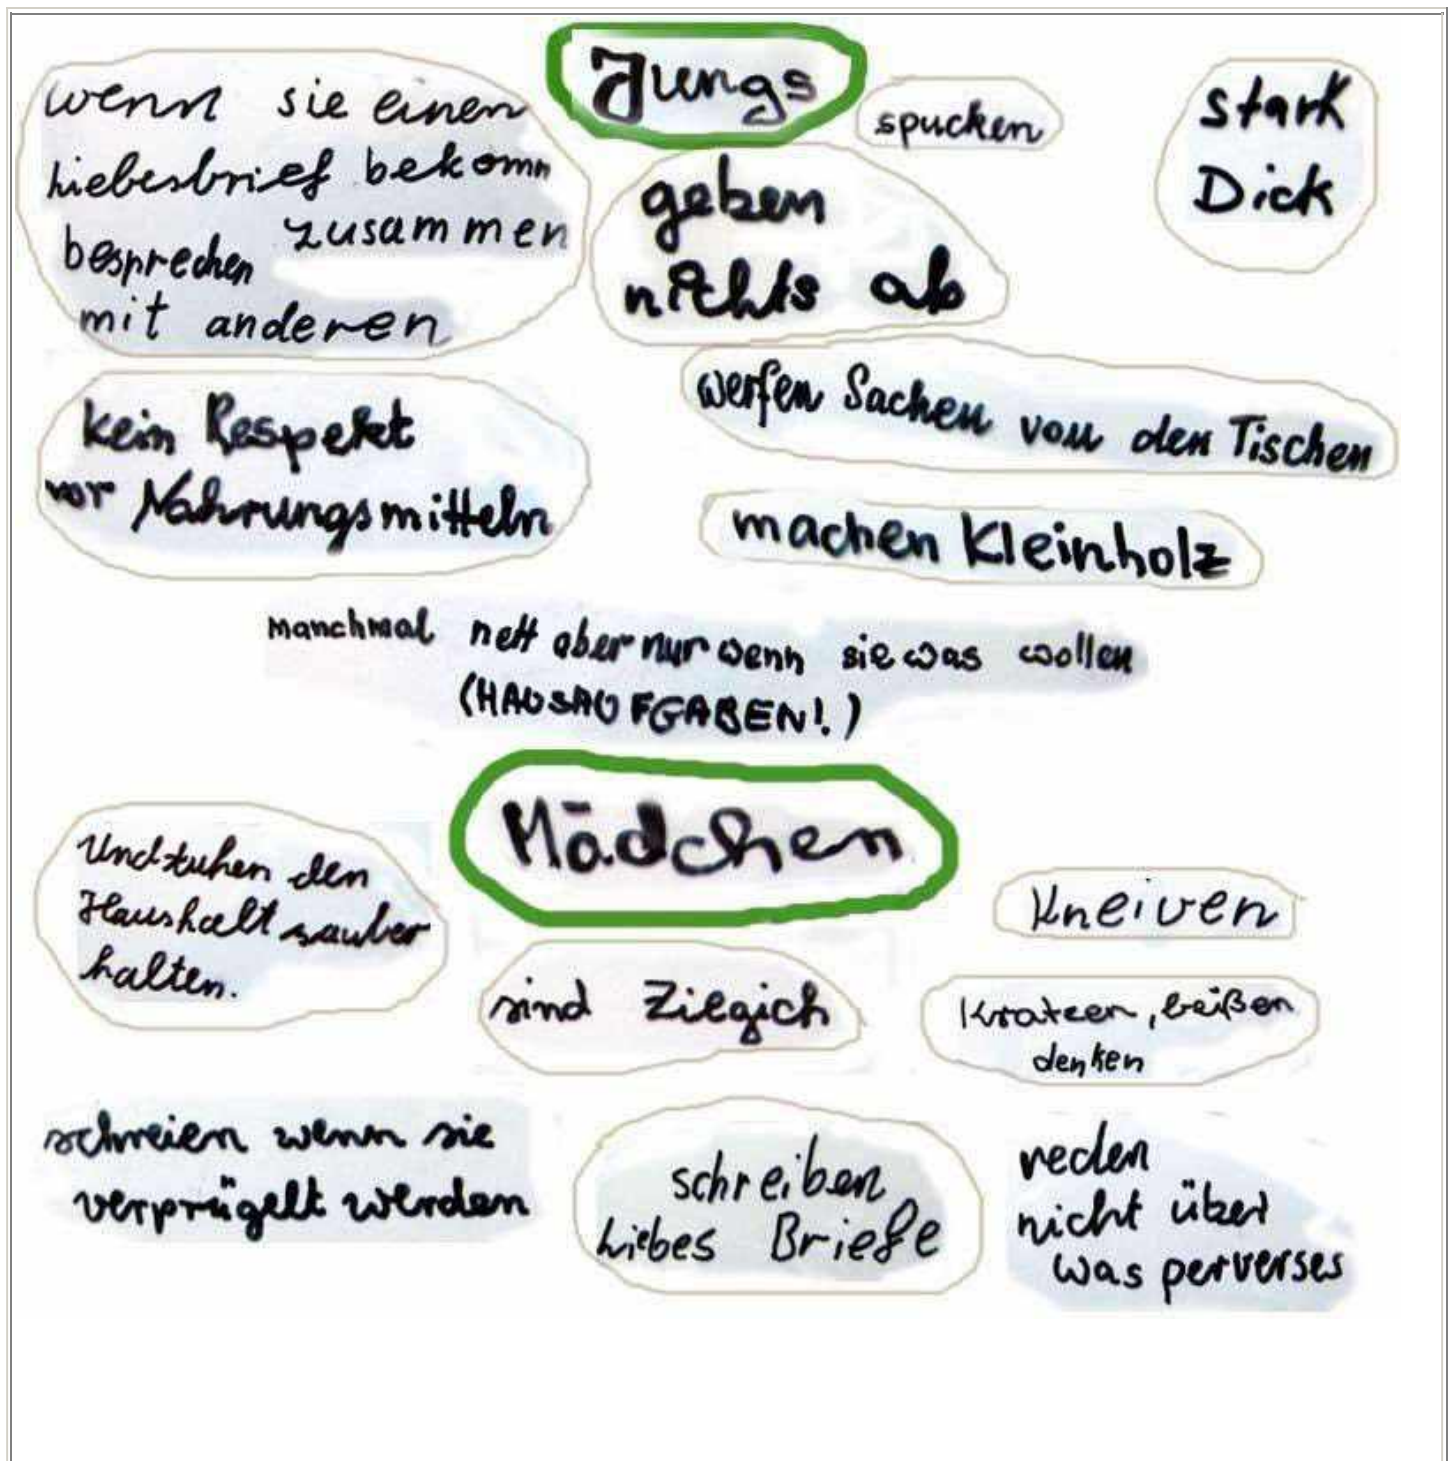 Jungs
wenn sie einen
Liebesbrief bekomn
besprechen zusammen
mit anderen
spucken
stark
Dick
geben
nichts ab
werfen Sachen von den Tischen
kein Respekt
vor Nahrungsmitteln
machen Kleinholz
manchmal nett aber nur wenn sie was wollen
(HAUSAUFGABEN!)
Mädchen
Und tuhen den
Haushalt sauber
halten.
Kneiven
sind Zilgich
Kratzen, beißen
denken
schreien wenn sie
verprügelt werden
schreiben
Liebes Briefe
reden
nicht über
was perverses